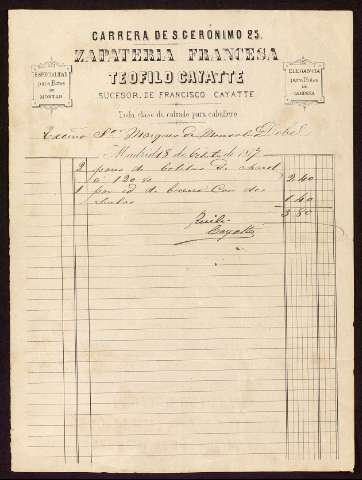 CARRERA DE S. GERÓNIMO 25.
ZAPATERIA FRANCESA
TEOFILO CAYATTE
SUCESOR DE FRANCISCO CAYATTE
ESPECIALIDAD
para Botas
DE
MONTAR
ELEGANCIA
para Botas
DE
CAMPAÑA
Toda clase de calzado para caballero
Excmo Sr. Marques de Debe
Madrid 8 de Octubre de 187
2 pares de botitos de charol
a 120 rs 240
1 par id de becerro Con dos
suelas 140
380
Recibi
Cayatte